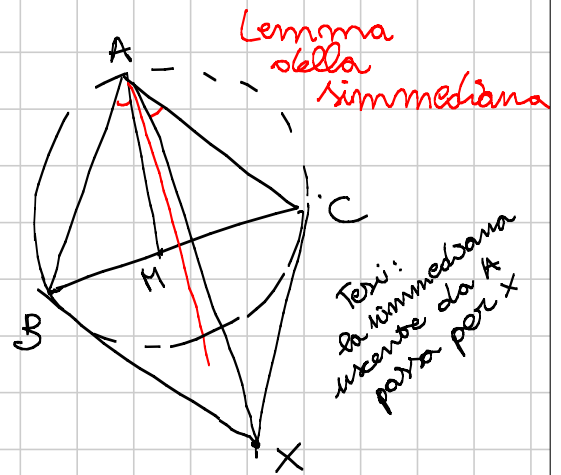 Lemma
della
simmediana
A
C
M
B
X
Tesi:
la simmediana
uscente da A
passa per X